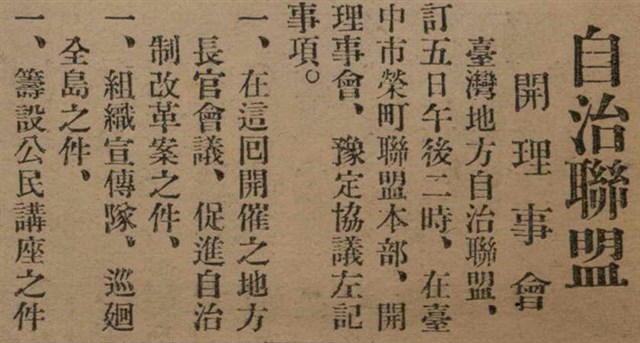 自治聯盟
開理事會
臺灣地方自治聯盟、
訂五日午後二時、在臺
中市榮町聯盟本部、開
理事會、豫定協議左記
事項。
一、在這回開催之地方
長官會議、促進自治
制改革案之件、
一、組織宣傳隊、巡廻
全島之件、
一、籌設公民講座之件